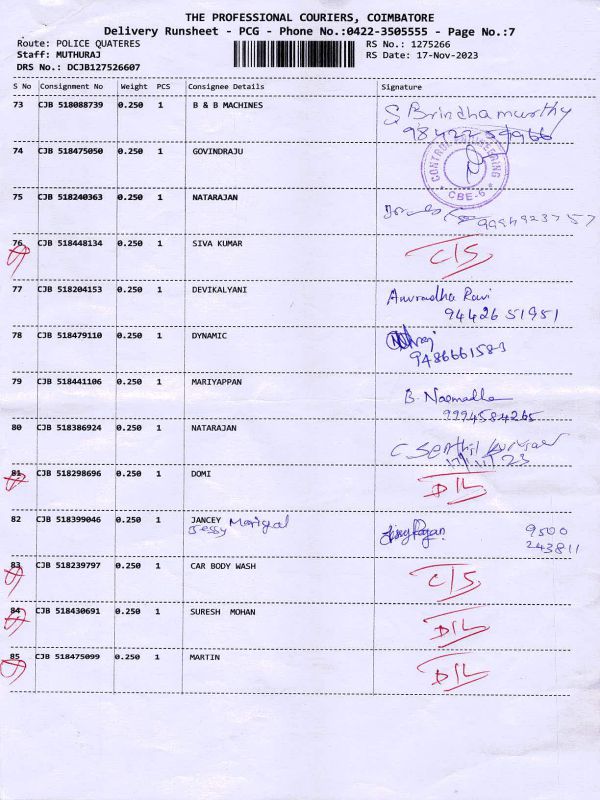 THE PROFESSIONAL COURIERS, COIMBATORE
Delivery Runsheet - PCG - Phone No.:0422-3505555 - Page No.:7
Route: POLICE QUATERES RS No.: 1275266
Staff: MUTHURAJ RS Date: 17-Nov-2023
DRS No.: DCJB127526607
S No Consignment No Weight PCS Consignee Details Signature
73 CJB 518088739 0.250 1 B & B MACHINES S Brindhamurthy
74 CJB 518475050 0.250 1 GOVINDRAJU CBE-6
75 CJB 518240363 0.250 1 NATARAJAN
76 CJB 518448134 0.250 1 SIVA KUMAR C/S
77 CJB 518204153 0.250 1 DEVIKALYANI Anuradha Ravi
94426 51951
78 CJB 518479110 0.250 1 DYNAMIC
9486661583
79 CJB 518441106 0.250 1 MARIYAPPAN B. Naomadha
9994584265
80 CJB 518386924 0.250 1 NATARAJAN C Senthil Kumar
17/11/23
81 CJB 518298696 0.250 1 DOMI D/L
82 CJB 518399046 0.250 1 JANCEY 9500
Jessy 243811
83 CJB 518239797 0.250 1 CAR BODY WASH C/S
84 CJB 518430691 0.250 1 SURESH MOHAN D/L
85 CJB 518475099 0.250 1 MARTIN D/L